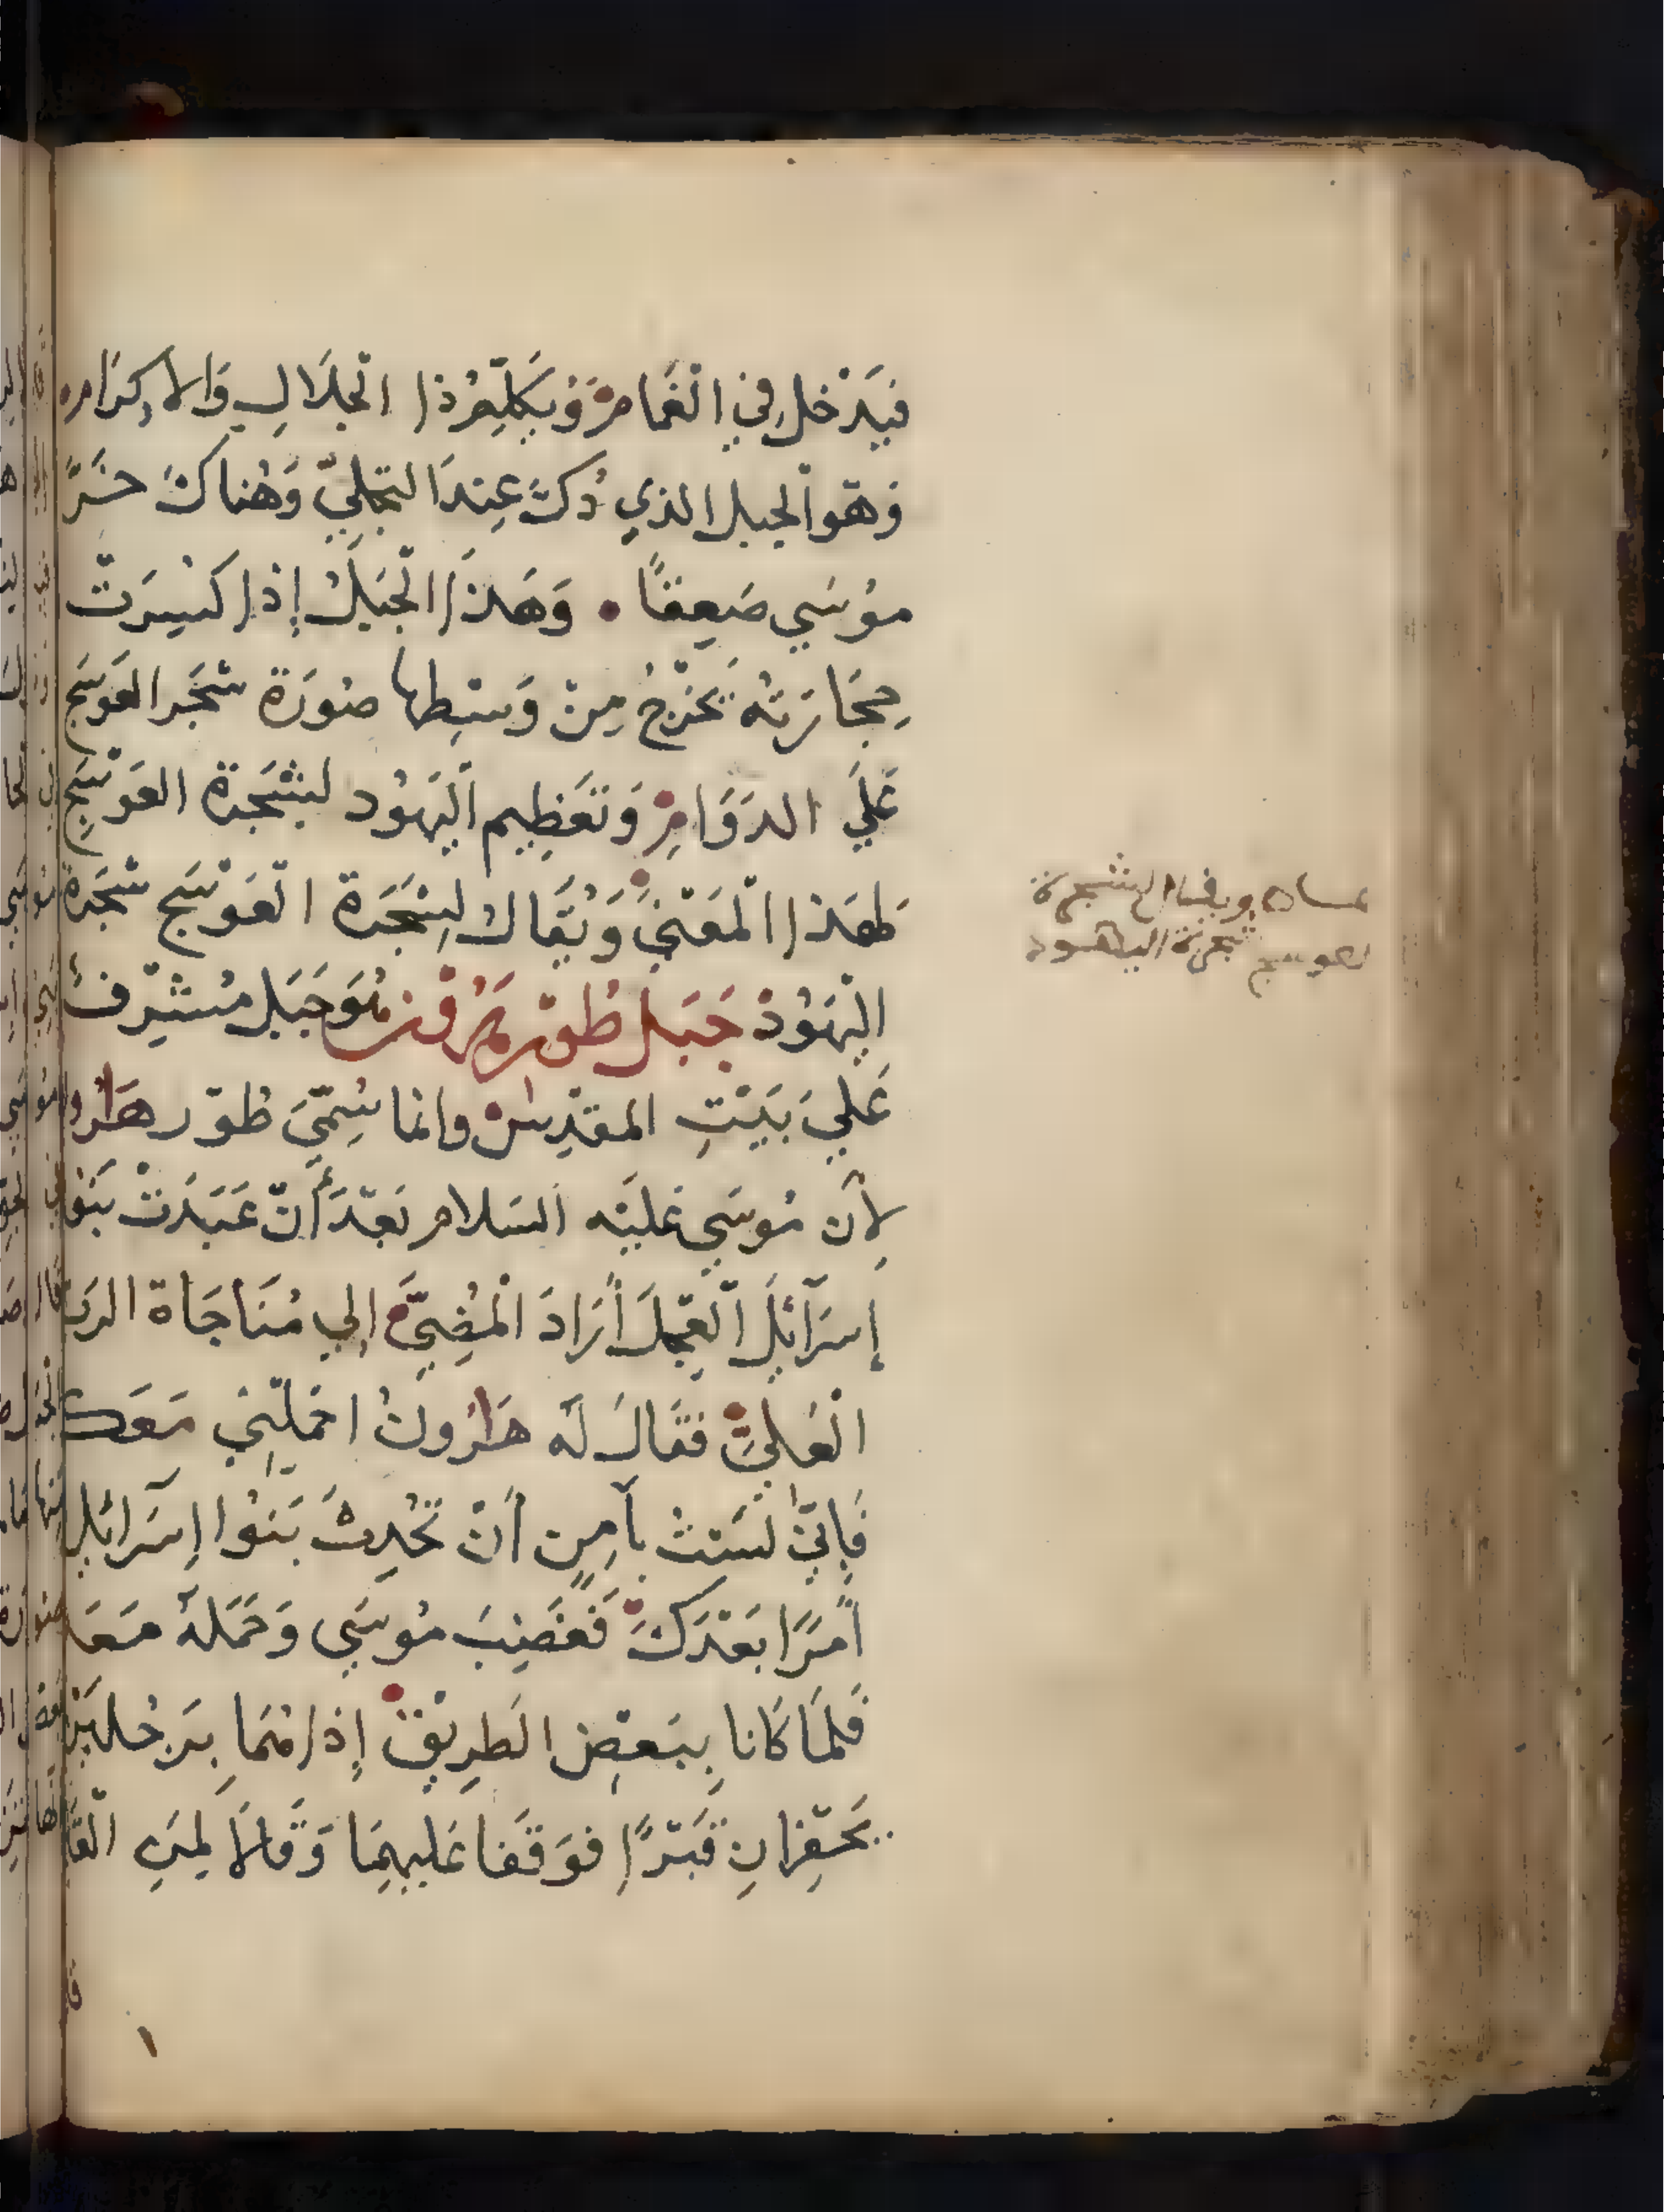 فَيَدْخُل فِي الْغَمَامِ وَيُكَلِّمُ ذا الْجَلَالِ وَالاِكرَام
وَهوَ الجبل الذي دُكَّ عِندَ التجلِيّ وَهُناكَ خَرَّ
مُوسَي صَعِقًا • وَهَذَا الْجَبَلُ إِذا كُسِرَتْ
حِجَارَتُه يَخْرُجُ مِنْ وَسَطِها صُورَة شَجَر العَوسَج
عَلَي الدَوَامِ وَتَعْظِيم اليَهُود لِشَجَرَة العَوْسَج
لِهَذا الْمَعْنَي وَيُقَال لِشَجَرَة الْعَوْسَج شَجَرَة
اليَهُودْ جَبَل طُورْ هَرُون هُوَ جَبَل مُشْرِف
عَلَي بَيْتِ المَقْدِسْ وانما سُمِّيَ طُوْر هَارُو
لأَن مُوسَي عَلَيْه السَلام بَعْدَ أَنْ عَبَدَتْ بَنُو
إِسرَآئِل الْعِجْلَ أَرَادَ الْمُضِيَّ إِلي مُنَاجَاة الرَب
الْعَلِيّ فَقَالَ لَه هَارُونُ احْمِلْنِي مَعَك
فَإِنِّي لَسْتُ بآمِنٍ أَنْ تُحْدِثَ بَنُوا إِسَرَائِل
أَمْرًا بَعْدَكَ فَغَضِبَ مُوسَي وَحَمَلَهُ مَعَه
فَلَمَا كَانا بِبَعْضِ الطَرِيْقْ إِذا هُمَا بِرَجُلَيْن
يَحْفِرَانِ قَبْرًا فوَقَفا عَليهِمَا وَقَالَا لِمَن القَ
ويقال لشجرة
العوسج شجرة اليهود
١